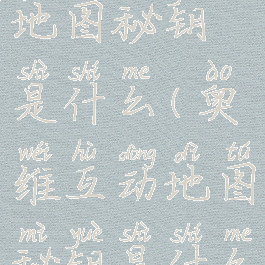 地图秘钥
shì shí me ào
是什么(奥
wéi hù dòng dì tú
维互动地图
mì yuè shì shí me
秘钥是什么